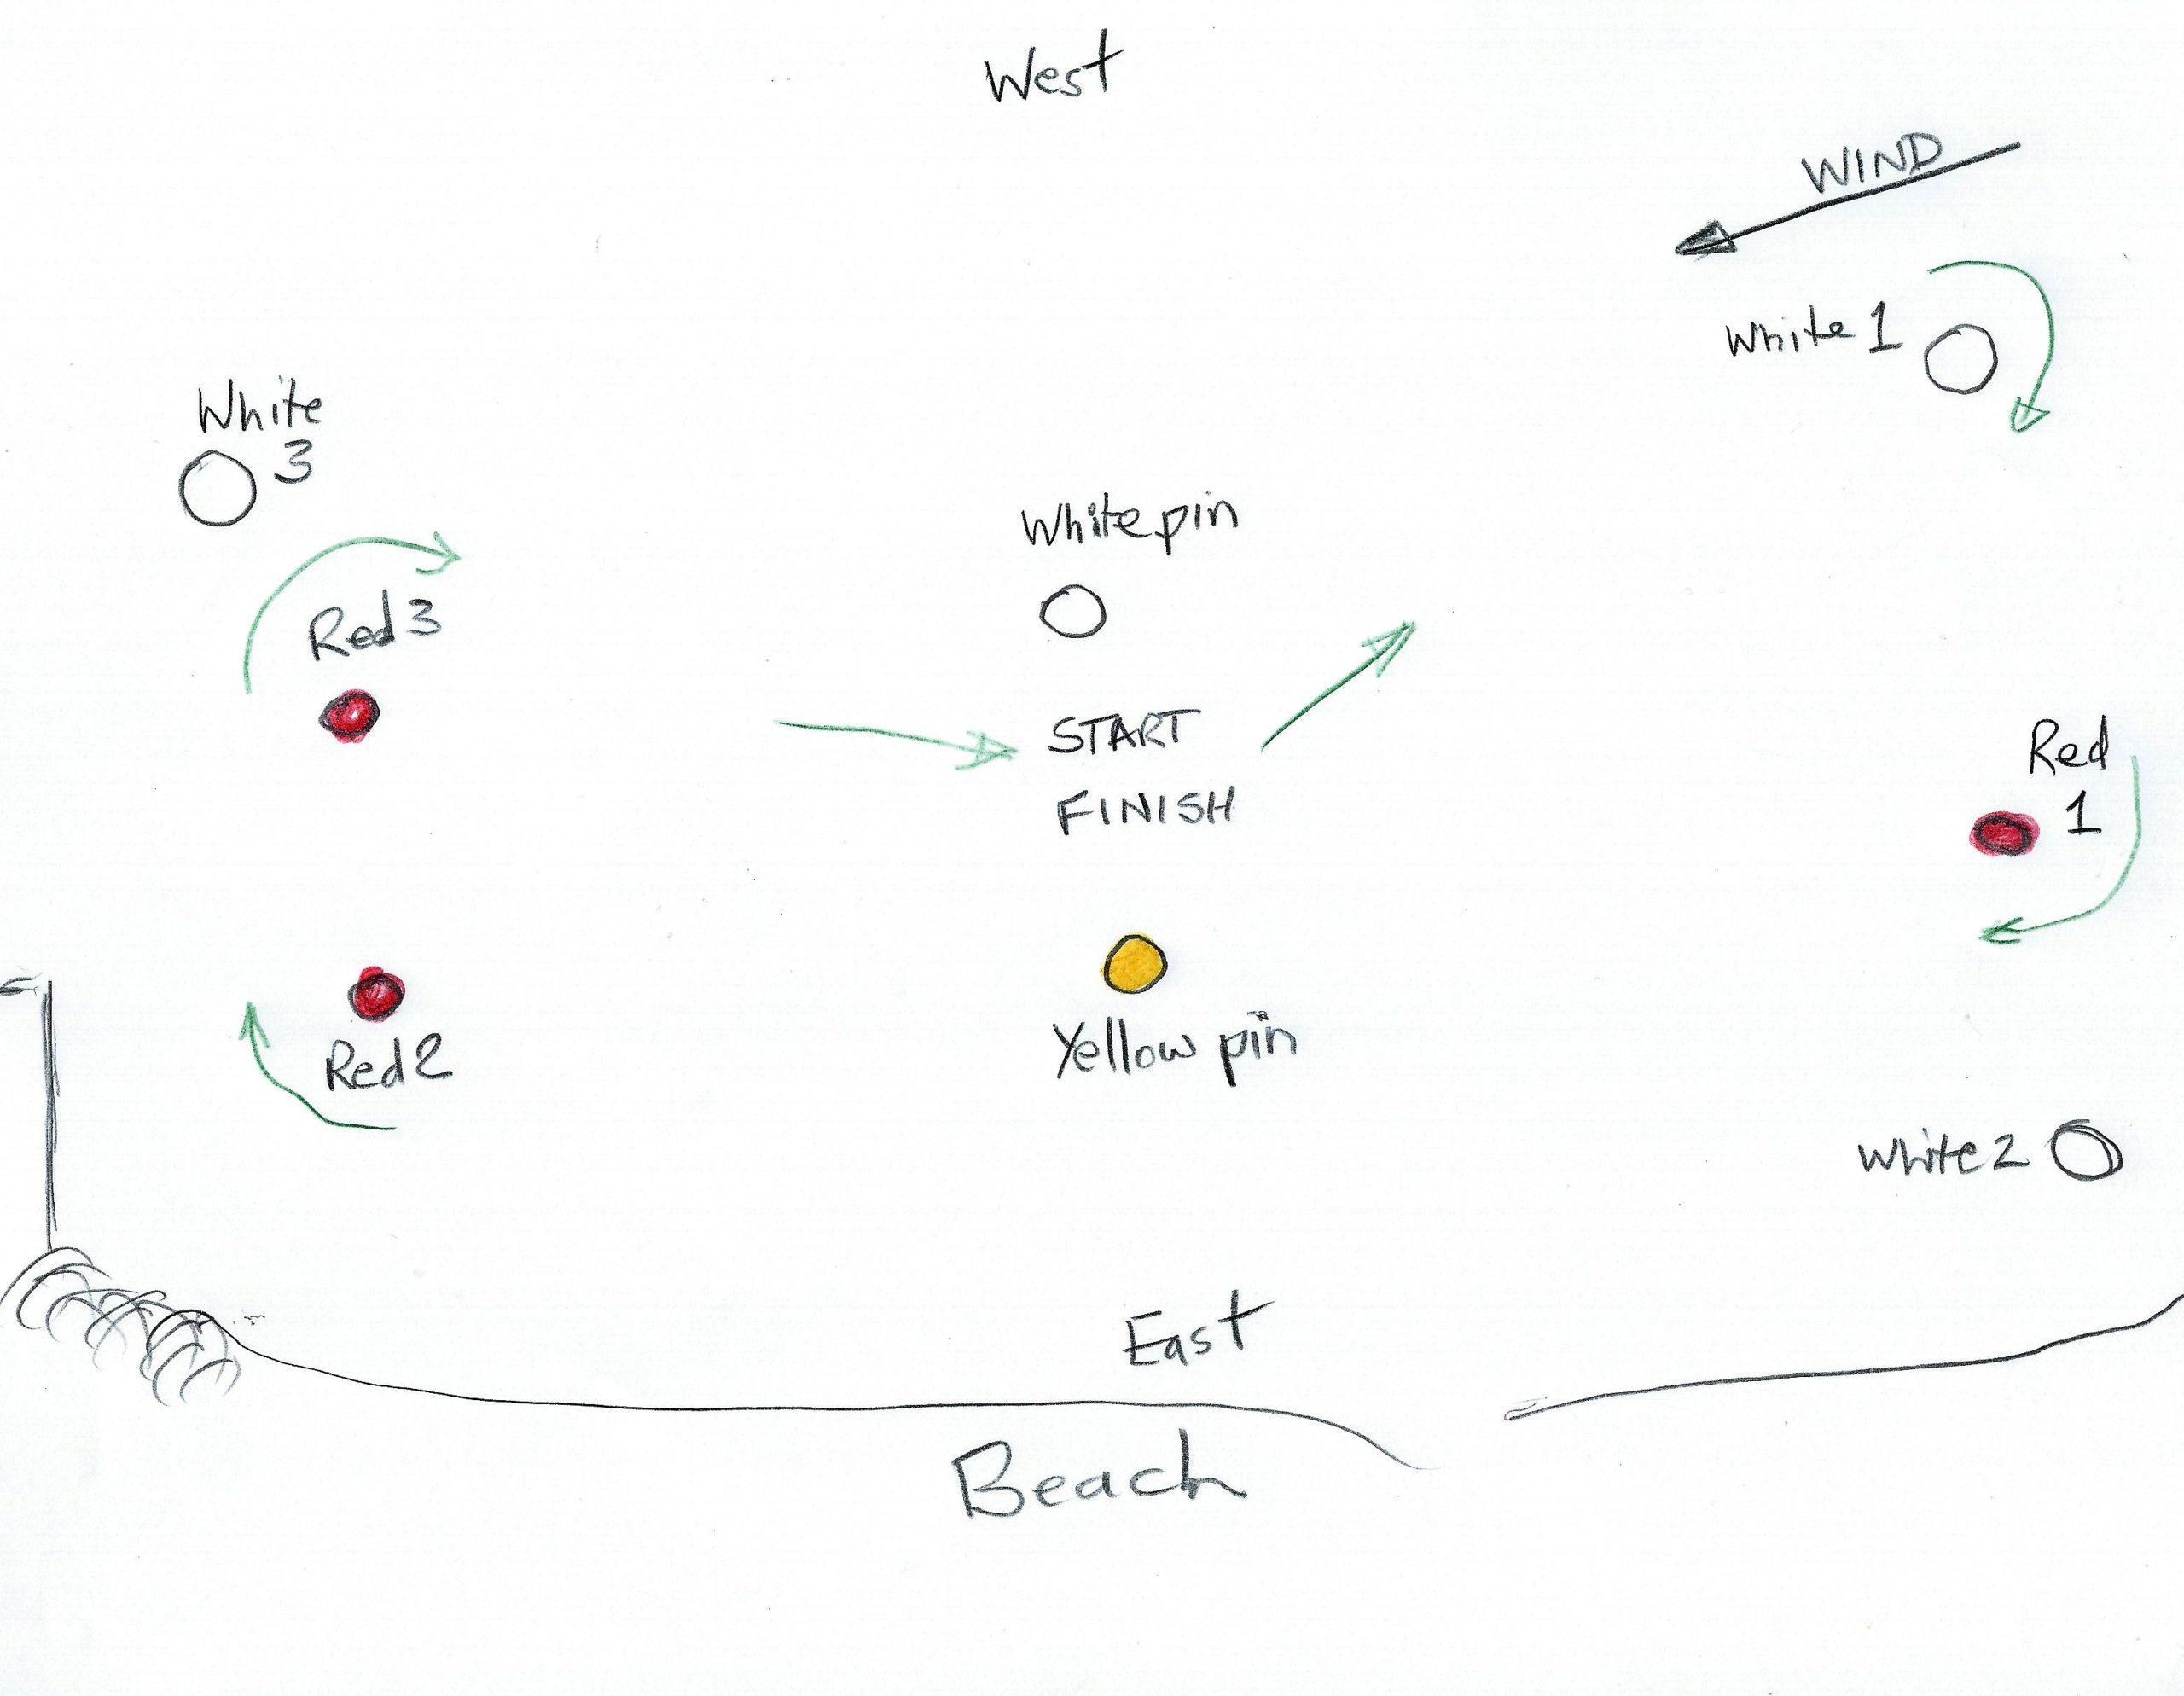 West
WIND
White 1
White
3
White pin
Red 3
START
FINISH
Red
1
Red 2
Yellow pin
White 2
East
Beach